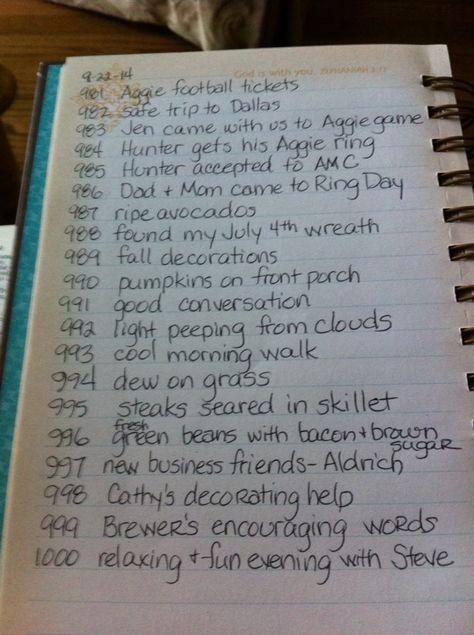 9-22-14
God is with you. ZEPHANIAH 3:17
981 Aggie football tickets
982 safe trip to Dallas
983 Jen came with us to Aggie game
984 Hunter gets his Aggie ring
985 Hunter accepted to AMC
986 Dad + Mom came to Ring Day
987 ripe avocados
988 found my July 4th wreath
989 fall decorations
990 pumpkins on front porch
991 good conversation
992 light peeping from clouds
993 cool morning walk
994 dew on grass
995 steaks seared in skillet
996 fresh green beans with bacon + brown sugar
997 new business friends - Aldrich
998 Cathy's decorating help
999 Brewer's encouraging words
1000 relaxing + fun evening with Steve